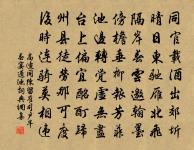 同官載酒出郊圻
晴日東馳雁北飛
隔岸春雲邀翰墨
傍檐垂柳報芳菲
池邊轉覺虛無盡
臺上偏宜酩酊歸
州縣徒勞那可度
後時連騎莫相違
高適同陳留崔司戶早
春宴蓬池詞典網集